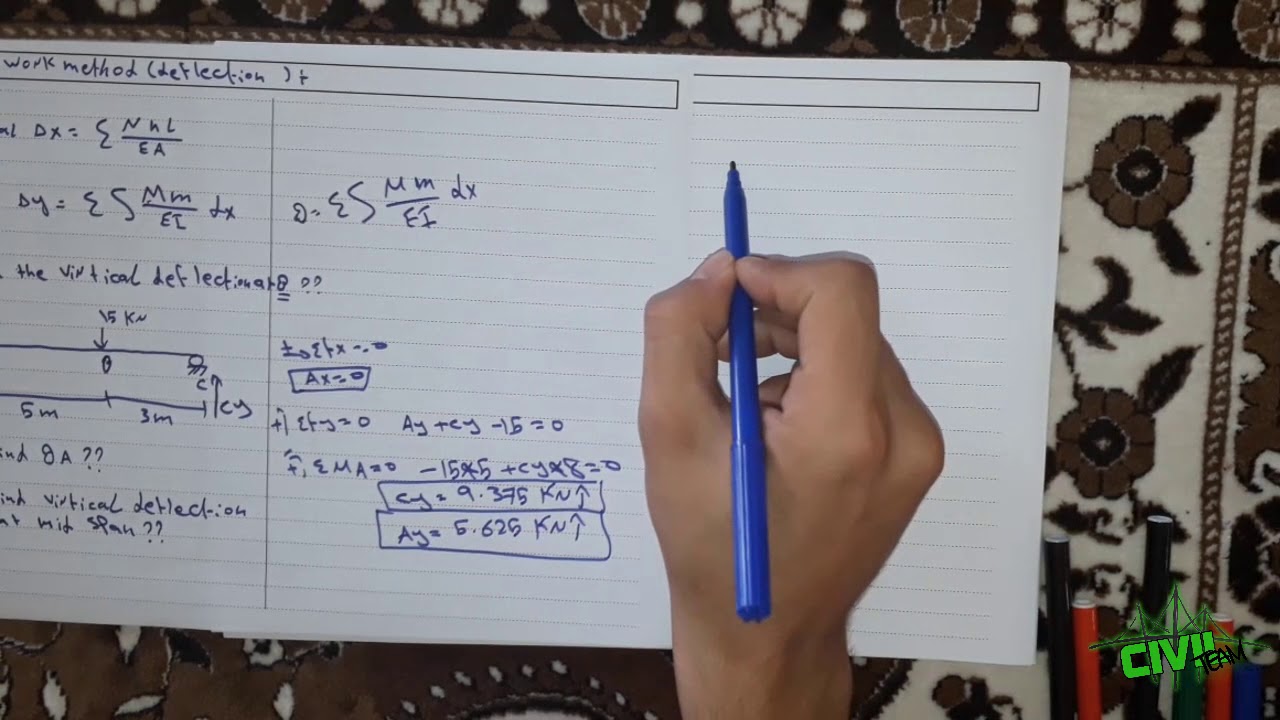 work method (deflection ):
Δx = Σ NnL
EA
Δy = Σ ∫ Mm dx
EI
θ = Σ ∫ Mm dx
EI
the virtical deflection at B ??
15 KN
B
C
Cy
5m
3m
ind θA ??
ind virtical deflection
at mid span ??
+→ Σfx = 0
Ax=0
+↑ Σfy=0 Ay +Cy -15 = 0
+, Σ MA=0 -15*5 +Cy*8=0
Cy = 9.375 KN↑
Ay= 5.625 KN↑
CIVIL
TEAM